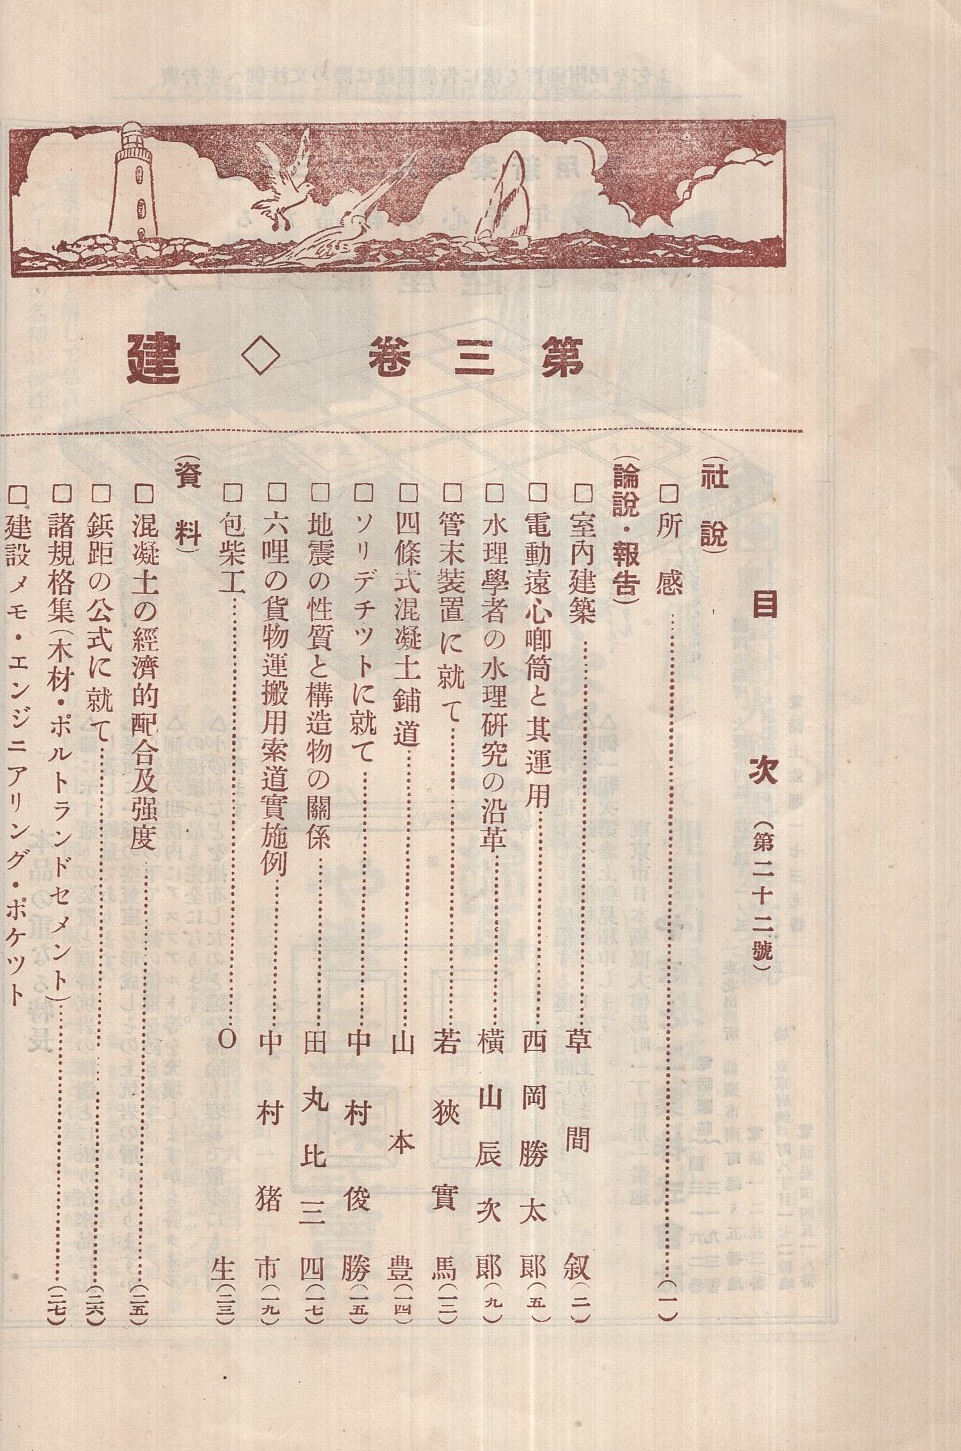 第三卷 ◇ 建
目次 (第二十二號)
(社說)
□所感……(一)
(論說・報告)
□室內建築……草間叙(二)
□電動遠心喞筒と其運用……西岡勝太郞(五)
□水理學者の水理硏究の沿革……橫山辰次郞(九)
□管末裝置に就て……若狹實馬(一二)
□四條式混凝土鋪道……山本豊(一四)
□ソリデチツトに就て……中村俊勝(一五)
□地震の性質と構造物の關係……田丸比三四(一七)
□六哩の貨物運搬用索道實施例……中村猪市(一九)
□包柴工……O生(二三)
(資料)
□混凝土の經濟的配合及强度……(二五)
□鋲距の公式に就て……(二六)
□諸規格集(木材・ポルトランドセメント)……(二七)
□建設メモ・エンジニアリング・ポケツト